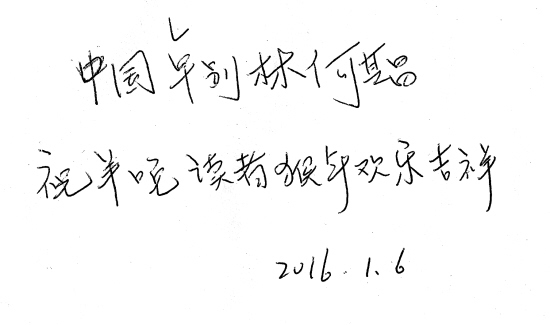 中国卓别林何其昌
祝羊晚读者猴年欢乐吉祥
2016.1.6